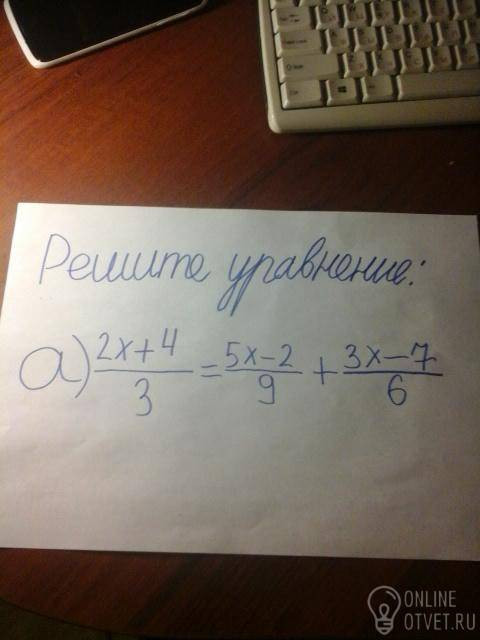 Решите уравнение:
а) (2x+4)/3 = (5x-2)/9 + (3x-7)/6
ONLINE
OTVET.RU